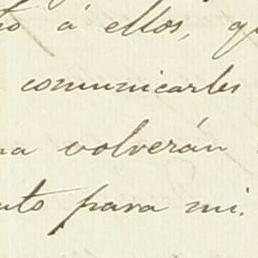 á ellos,
comunicarles
volverán
para mi.